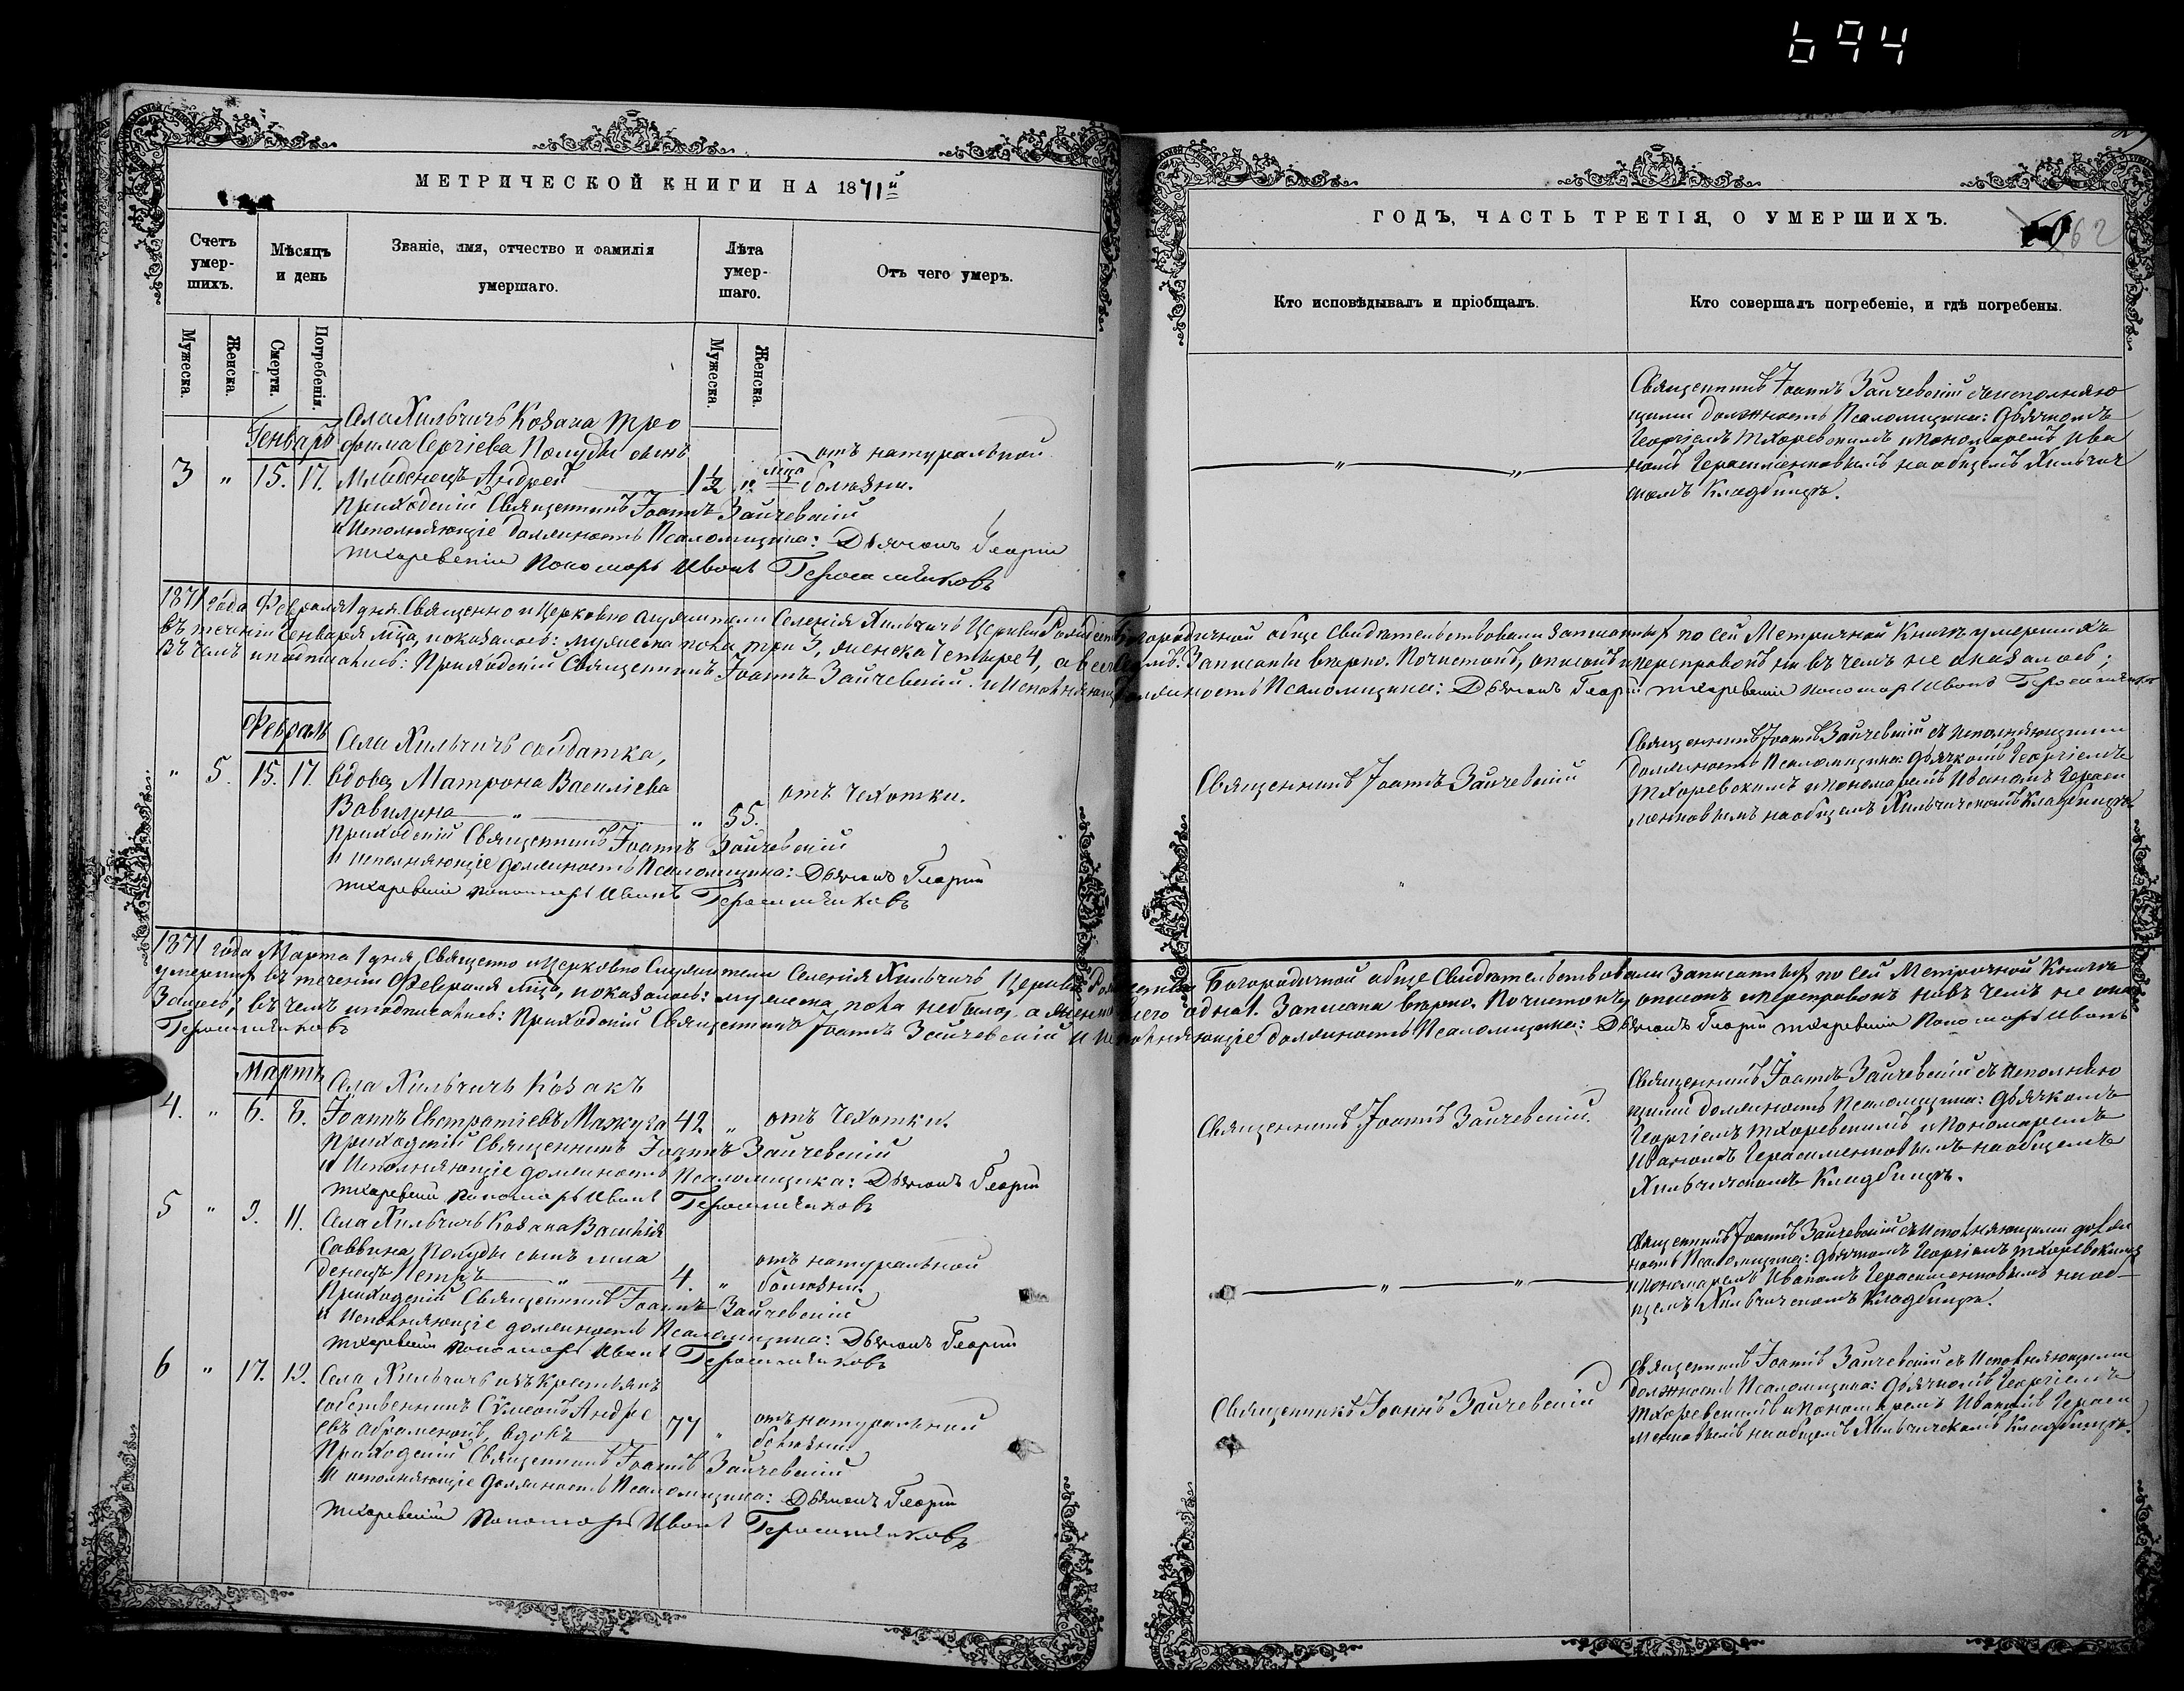 694
МЕТРИЧЕСКОЙ КНИГИ НА 1871й
Счетъ умер-шихъ.
Мѣсяцъ и день
Званіе, имя, отчество и фамилія умершаго.
Лѣта умер-шаго.
Отъ чего умеръ.
Мужеска.
Женска.
Смерти.
Погребенія.
Мужеска.
Женска.
Генварь
Села Хильчичъ Козака Тро
фима Сергіева Полуды сынъ
отъ натуральной
3 " 15. 17. Младенецъ Андрей 1½ " мца болѣзни.
Приходскій Священникъ Іоаннъ Зайчевскій
и Исполняющіе должность Псаломщика: Дьячокъ Георгій
Тхоревскій Пономарь Иванъ Герасименковъ
1871 года Февраля 1 дня Священно и Церковно служители Селенія Хильчичъ Церкви Рождество
въ теченіи Генваря мца, показалось: мужеска пола три 3, женска четыре 4, а всего
Въ чемъ и подписались: Приходскій Священникъ Іоаннъ Зайчевскій и Исполняющ
Февраль
Села Хильчичъ солдатка,
" 5. 15. 17. вдова Матрона Василіева
отъ чехотки.
Вавилина " " 55.
Приходскій Священникъ Іоаннъ Зайчевскій
и исполняющіе должность Псаломщика: Дьячокъ Георгій
Тхоревскій пономарь Иванъ Герасименковъ
1871 года Марта 1 дня, Священно и Церковно Служители Селенія Хильчичъ Церкви Рождество
умершихъ въ теченіи Февраля мца, показалось: мужеска пола небыло, а женска всего
зались; въ чемъ и подписались: Приходскій Священникъ Іоаннъ Зайчевскій и исполняющіе
Герасименковъ
Мартъ
Села Хильчичъ Козакъ
4. " 6. 8. Іоаннъ Евстратіевъ Мажуга 42 " отъ Чехотки.
Приходскій Священникъ Іоаннъ Зайчевскій
и Исполняющіе должность Псаломщика: Дьячокъ Георгій
Тхоревскій пономарь Иванъ Герасименковъ
5 " 9. 11. Села Хильчичъ Козака Василія
Саввина Полуды сынъ мла
отъ натуральной
денецъ Петръ " 4. " болѣзни.
Приходскій Священникъ Іоаннъ Зайчевскій
и Исполняющіе должность Псаломщика: Дьячокъ Георгій
Тхоревскій пономарь Иванъ Герасименковъ
6 " 17. 19. Села Хильчичъ изъ крестьянъ
собственникъ Сѵмеонъ Андре
евъ Абраменокъ, вдовъ 77 " отъ натуральной
болѣзни
Приходскій Священникъ Іоаннъ Зайчевскій
и исполняющіе должность Псаломщика: Дьячокъ Георгій
Тхоревскій Пономарь Иванъ Герасименковъ
ГОДЪ, ЧАСТЬ ТРЕТІЯ, О УМЕРШИХЪ.
62
Кто исповѣдывалъ и пріобщалъ.
Кто совершалъ погребеніе, и гдѣ погребены.
Священникъ Іоаннъ Зайчевскій съ исполняю
щими должность Псаломщика: Дьячкомъ
Георгіемъ Тхоревскимъ и Пономаремъ Ива
номъ Герасименковымъ на общемъ Хильчич
скомъ Кладбищѣ.
Богородичной обще Свидѣтельствовали Записанныхъ по сей Метричной Книгѣ умершихъ
Записаны вѣрно. Почистокъ, описокъ и переправокъ ни въ чемъ не оказалось;
должность Псаломщика: Дьячокъ Георгій Тхоревскій пономарь Иванъ Герасименковъ
Священникъ Іоаннъ Зайчевскій
Священникъ Іоаннъ Зайчевскій съ исполняющими
должность Псаломщика: Дьячкомъ Георгіемъ
Тхоревскимъ и пономаремъ Иваномъ Гераси
менковымъ на общемъ Хильчичскомъ Кладбищѣ.
Богородичной обще Свидѣтельствовали Записанныхъ по сей Метричной Книгѣ
одна 1. Записана вѣрно. Почистокъ, описокъ и переправокъ ни въ чемъ не ока
должность Псаломщика: Дьячокъ Георгій Тхоревскій Пономарь Иванъ
Священникъ Іоаннъ Зайчевскій.
Священникъ Іоаннъ Зайчевскій съ исполняю
щими должность Псаломщика: Дьячкомъ
Георгіемъ Тхоревскимъ и Пономаремъ
Иваномъ Герасименковымъ на общемъ
Хильчичскомъ Кладбищѣ.
Священникъ Іоаннъ Зайчевскій съ Исполняющими долж
ность Псаломщика: Дьячкомъ Георгіемъ Тхоревскимъ
и Пономаремъ Иваномъ Герасименковымъ на об-
щемъ Хильчичскомъ Кладбищѣ.
Священникъ Іоаннъ Зайчевскій
Священникъ Іоаннъ Зайчевскій съ Исполняющими
должность Псаломщика: Дьячкомъ Георгіемъ
Тхоревскимъ и Пономаремъ Иваномъ Гераси
менковымъ на общемъ Хильчичскомъ Кладбищѣ.